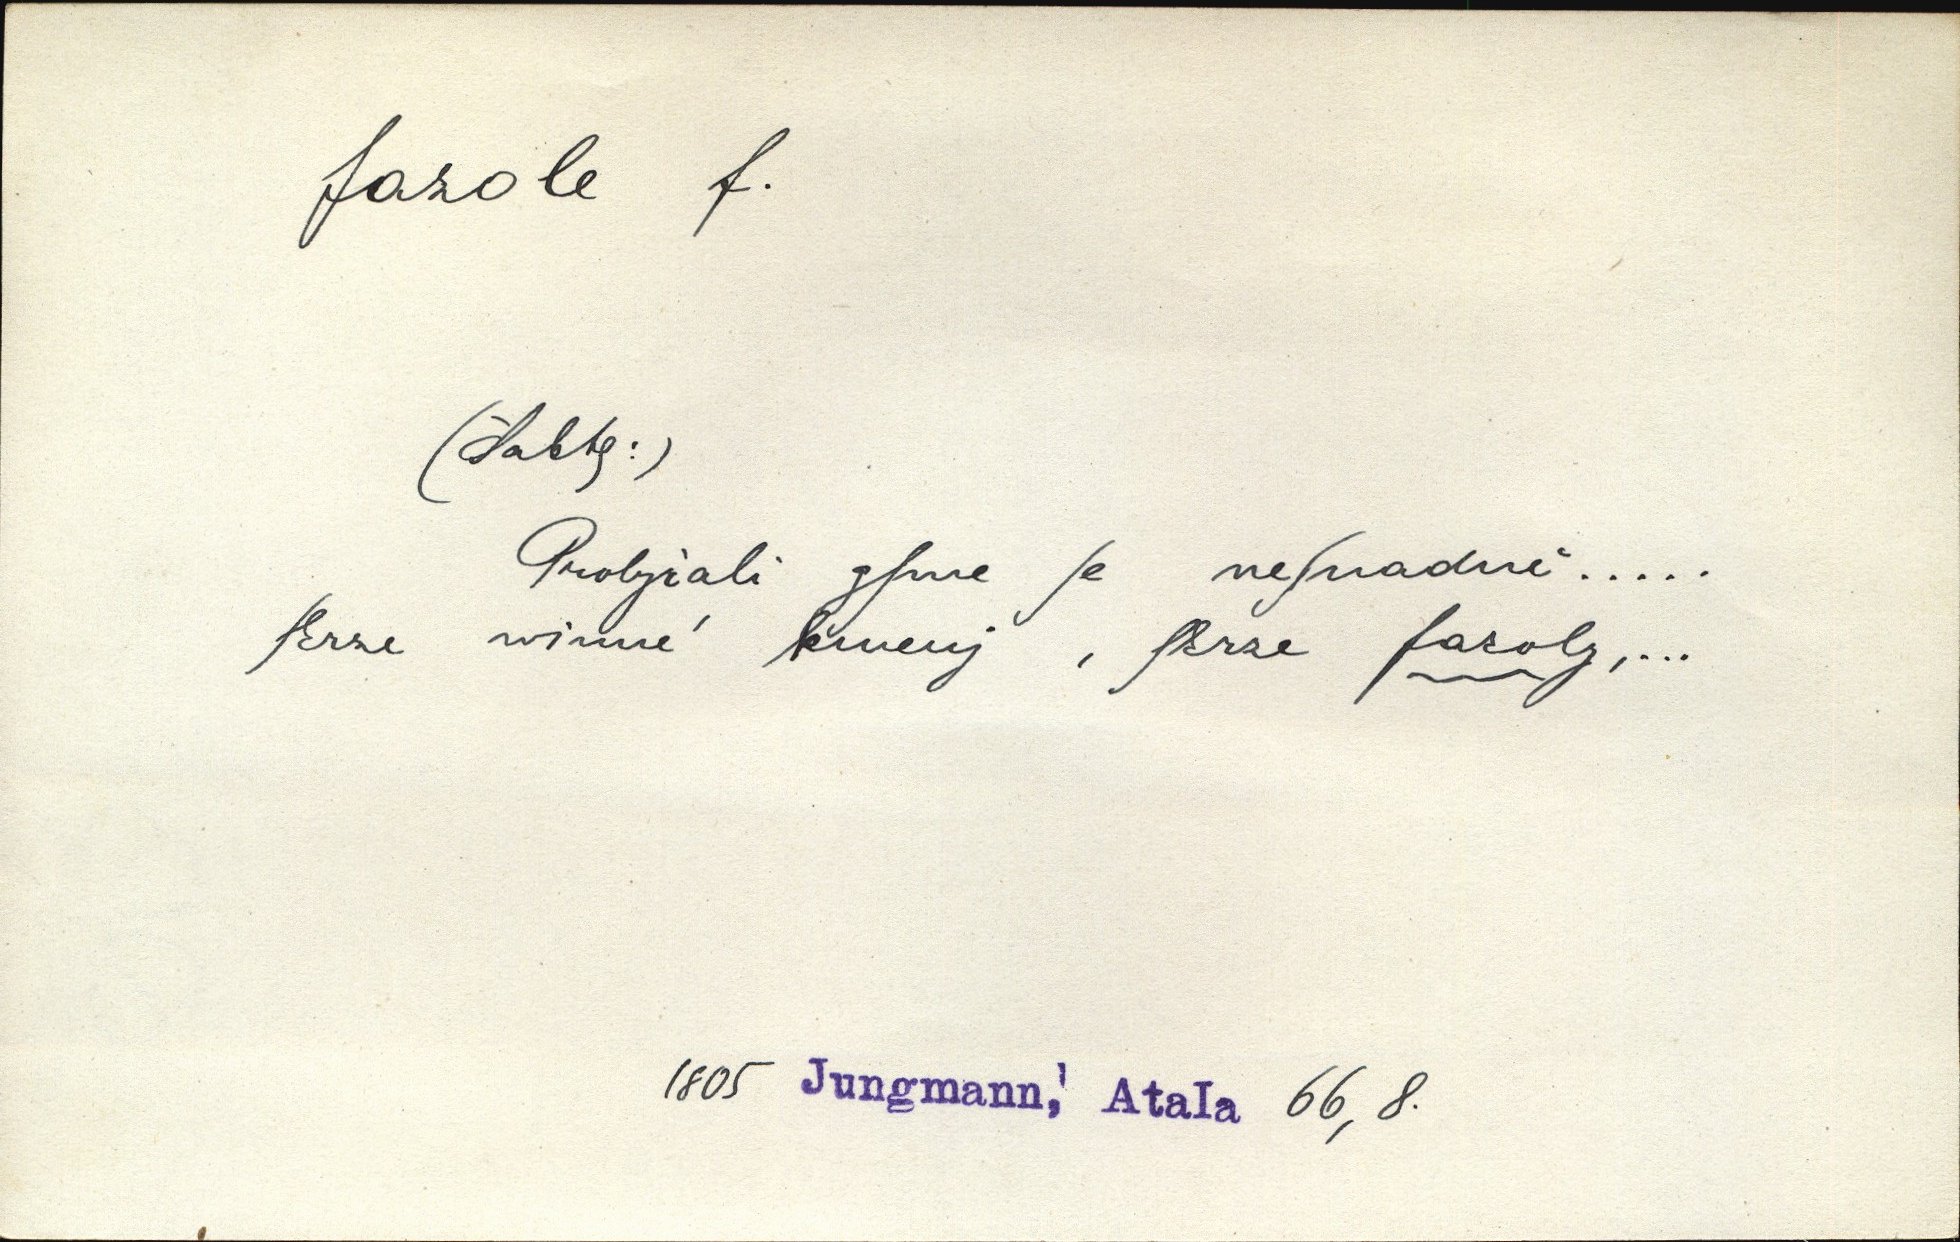 fazole f.
(Šakty:)
Probjrali gſme ſe neſnadně.....
ſkrze winné kmenj, ſkrze fazoly,...
1805 Jungmann, Atala 66, 8.